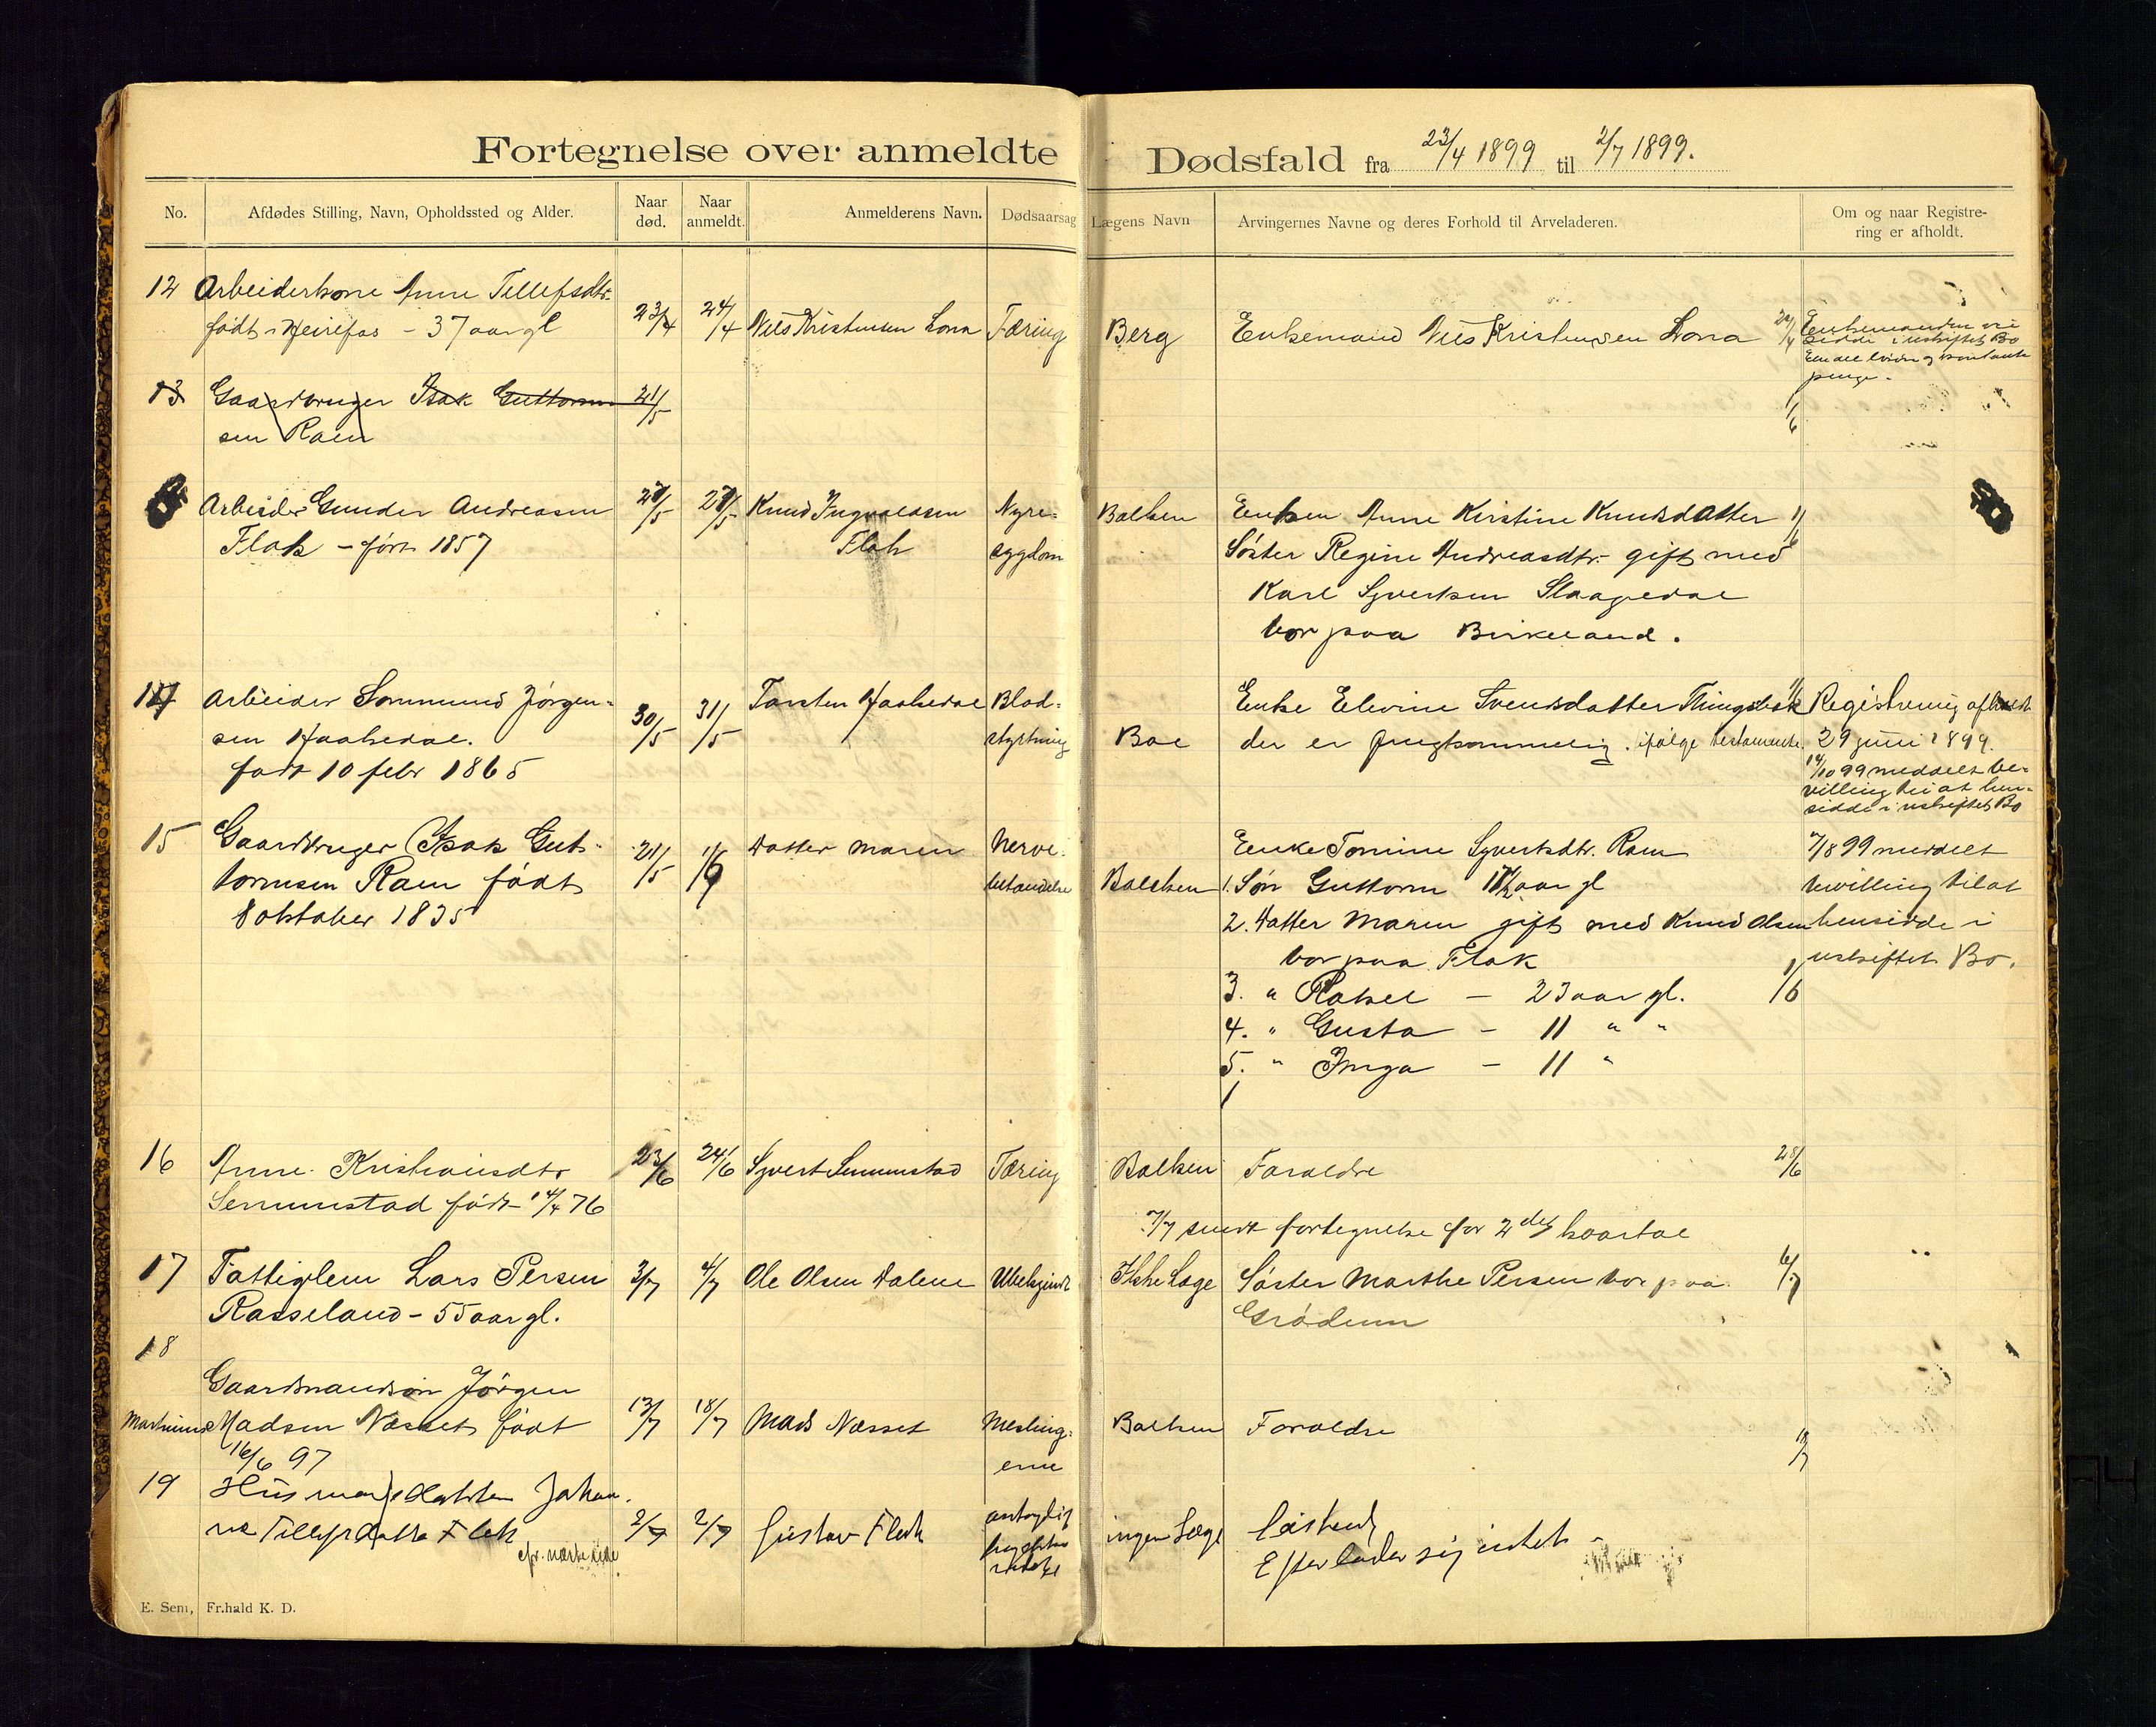 Fortegnelse over anmeldte Dødsfald fra 23/4 1899 til 2/7 1899.
No.
Afdødes Stilling, Navn, Opholdssted og Alder.
Naar død.
Naar anmeldt.
Anmelderens Navn.
Dødsaarsag
Lægens Navn
Arvingernes Navne og deres Forhold til Arveladeren.
Om og naar Registre-
ring er afholdt.
12 Arbeiderkone Anne Tellefsdtr.
født i Heirefos - 37 aar gl 23/4 24/4 Nils Kristensen Lona Tæring Berg Enkemand Nils Kristensen Lona
Enkemanden
sidde i uskiftet Bo
penge.
13 Gaardbruger Isak Guttorm 21/5
sen Raen
1/6
Arbeider Gunder Andreasen 27/5 Knud Ingvaldsen Nyre= Balken Enken Anne Kirstine Knudsdatter
Flak - født 1857 Flak sygdom Søster Regine Andreasdtr. gift med
Karl Syvertsen Slaagedal
bor paa Birkeland.
14 Arbeider Sommund Jørgen= 30/5 31/5 Torsten Haabedal Blod= Enke Elevine Svendsdatter Registrering afholdt
sen Haabedal. styrtning Boe der er frugtsommelig. ifølge testamente. 29 juni 1899.
født 10 febr 1865
14/10 99 meddelt be-
villing til at hen-
sidde i uskiftet Bo
15 Gaardbruger Isak Gut- 21/5 1/6 Datter Maren Nerve- Enke Tomine Syvertsdtr. Raen 7/8 99 meddelt
tormsen Raen født betændelse Balchen 1. Søn Guttorm aar gl bevilling til at
8 oktober 1835 2. Datter Maren gift med Knud Olsen hensidde i
bor paa Flak uskiftet Bo.
3. " Rakel - 23 aar gl. 1/6
4. " Gusta - 11 " "
5. " Inga - 11 "
16 Anne Kristiansdtr 23/6 24/6 Syvert Senumstad Tæring Balken Foraldre 25/6
Senumstad født 14/4 76
7/7 sendt fortegnelse for 2det kvartal
17 Fattiglem Lars Persen 3/7 4/7 Ole Olsen Dalene Ubekjendt Ikke Læge Søster Marthe Persen bor paa 6/7
Rasseland - 55 aar gl. Grødum
18
Gaardmandsøn Jørgen
Martinius Madsen Næsset født 13/7 18/7 Mads Næsset Mesling= Balken Foraldre
16/6 97 erne
19 Husmandsdatter Johan
ne Tellefsdatter Flak 2/7 2/7 Gustav Flak ingen Læge
Efterlader sig intet
cfr. næste side
E. Sem, Fr.hald K. D.